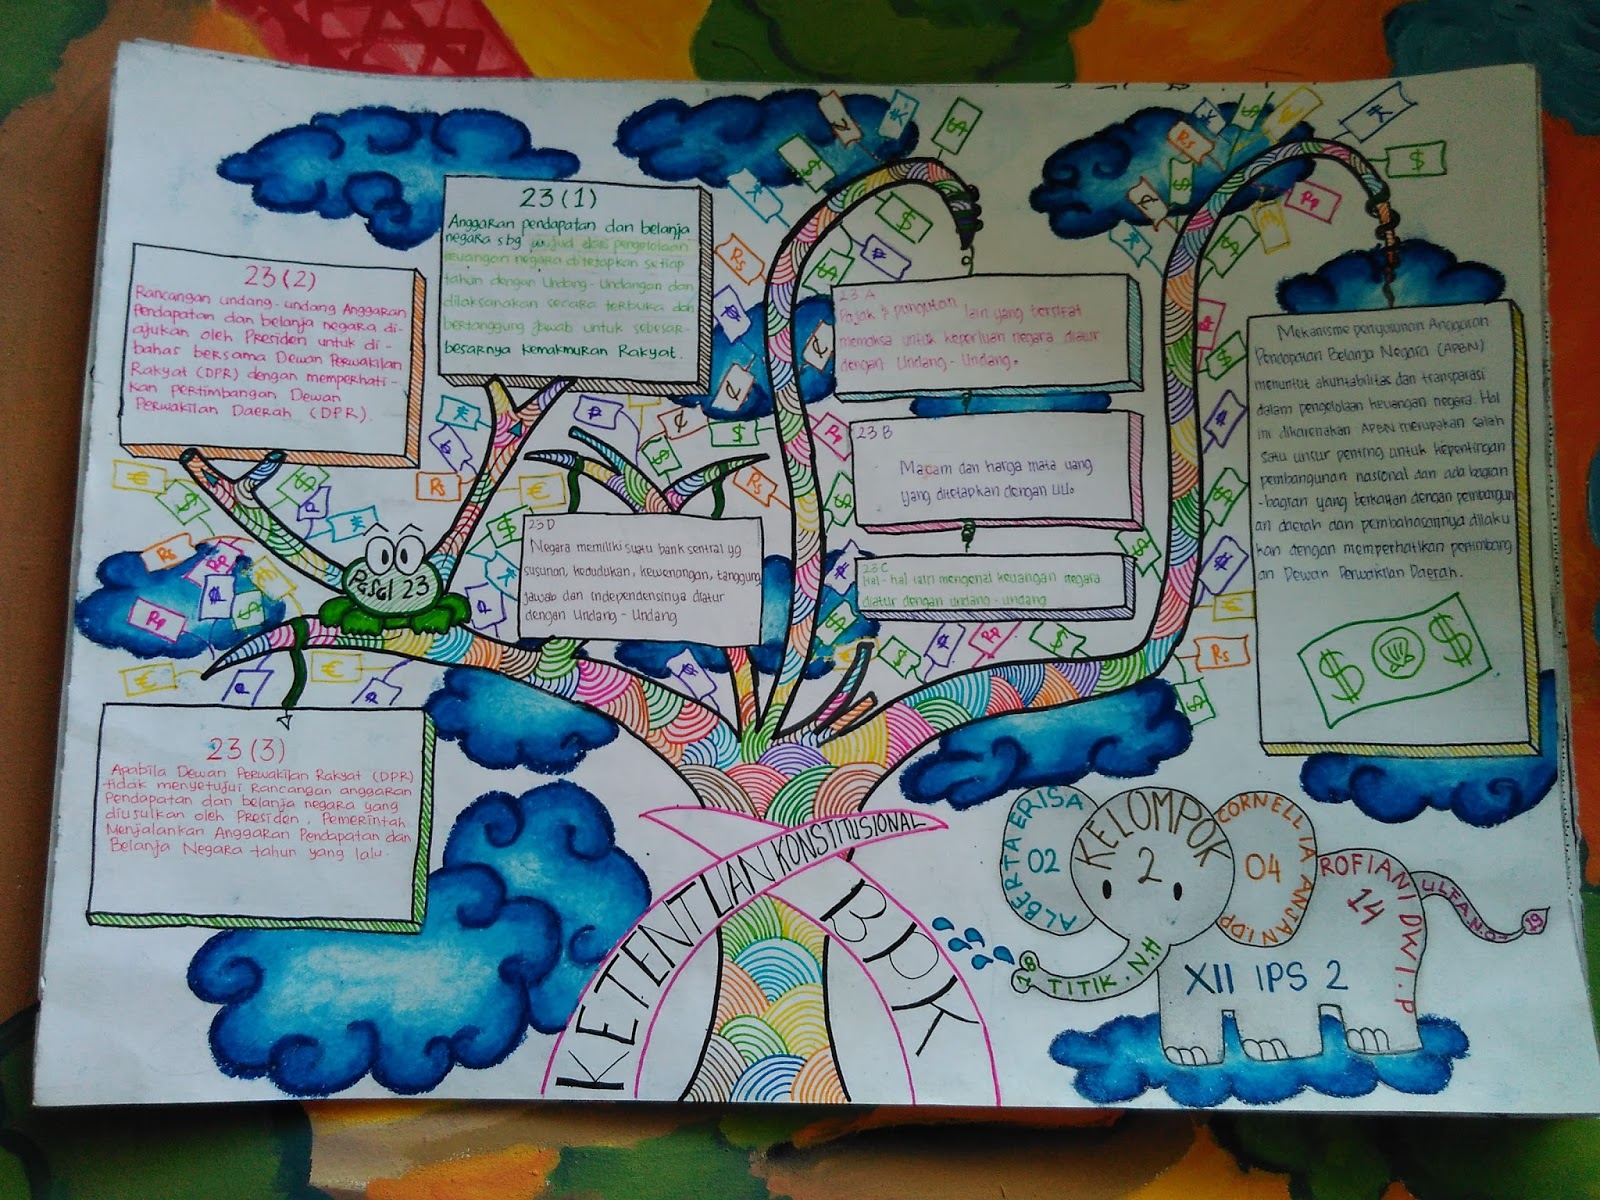 23 (1)
Anggaran pendapatan dan belanja
negara sbg wujud dari pengelolaan
keuangan negara ditetapkan setiap
tahun dengan Undang-Undangan dan
dilaksanakan secara terbuka dan
bertanggung jawab untuk sebesar-
besarnya kemakmuran Rakyat.
23 (2)
Rancangan undang-undang Anggaran
Pendapatan dan belanja negara di-
ajukan oleh Presiden untuk di-
bahas bersama Dewan Perwakilan
Rakyat (DPR) dengan memperhati-
kan pertimbangan Dewan
Perwakilan Daerah (DPR).
Pasal 23
23 (3)
Apabila Dewan Perwakilan Rakyat (DPR)
tidak menyetujui Rancangan anggaran
Pendapatan dan belanja negara yang
diusulkan oleh Presiden, Pemerintah
Menjalankan Anggaran Pendapatan dan
Belanja Negara tahun yang lalu.
23 D
Negara memiliki suatu bank sentral yg
susunan, kedudukan, kewenangan, tanggung
jawab dan independensinya diatur
dengan Undang-Undang
23 A
Pajak & pungutan lain yang bersifat
memaksa untuk keperluan negara diatur
dengan Undang-Undang.
23 B
Macam dan harga mata uang
yang ditetapkan dengan UU.
23 C
Hal-hal lain mengenai keuangan negara
diatur dengan undang-undang
Mekanisme penyusunan Anggaran
Pendapatan Belanja Negara (APBN)
menuntut akuntabilitas dan transparasi
dalam pengelolaan keuangan negara. Hal
ini dikarenakan APBN merupakan salah
satu unsur penting untuk kepentingan
pembangunan nasional dan ada bagian
-bagian yang berkaitan dengan pembangun
an daerah dan pembahasannya dilaku
kan dengan memperhatikan pertimbang
an Dewan Perwakilan Daerah.
$ $
KETENTUAN KONSTITUSIONAL
BPK
ALBERTA ERISA
02
KELOMPOK
2
CORNELLIA ANJANI DP
04
ROFIAN DWI.P
14
ULFA NO
19
TITIK. N.H
18
XII IPS 2